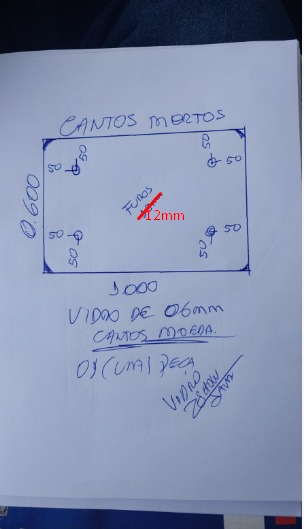 CANTOS MORTOS
50 50
50 50
0.600
FUROS
12mm
50 50
50 50
1.000
VIDRO DE 06mm
CANTOS MOEDA.
01 (UMA) PEÇA
VIDRO